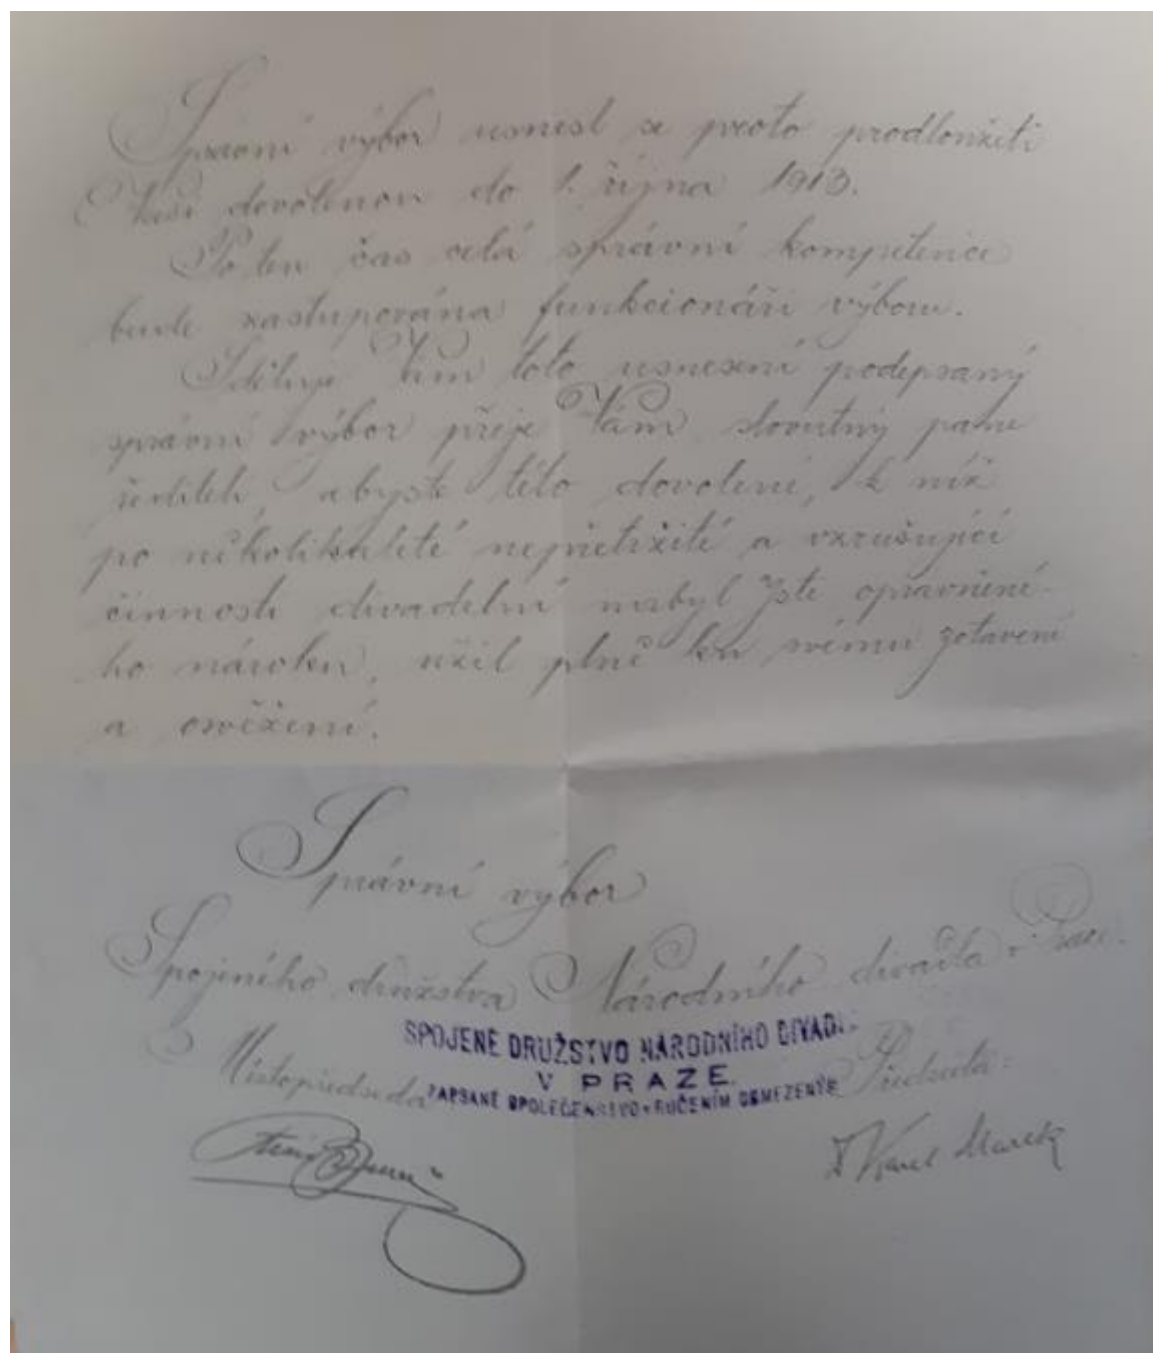 Správní výbor usnesl se proto prodloužiti
Vaši dovolenou do 1. října 1913.
Po ten čas celá správní kompetence
bude zastupována funkcionáři výboru.
Sděluje Vám toto usnesení podepsaný
správní výbor přeje Vám, slovutný pane
řediteli, abyste této dovolené, k níž
po několikaleté nepřetržité a vzrušující
činnosti divadelní nabyl jste oprávněné-
ho nároku, užil plně ku svému zotavení
a osvěžení.
Správní výbor
Spojeného družstva Národního divadla v Praze.
SPOJENÉ DRUŽSTVO NÁRODNÍHO DIVADLA
V PRAZE.
ZAPSANÉ SPOLEČENSTVO S RUČENÍM OBMEZENÝM
Místopředseda Předseda:
Dr Karel Marek